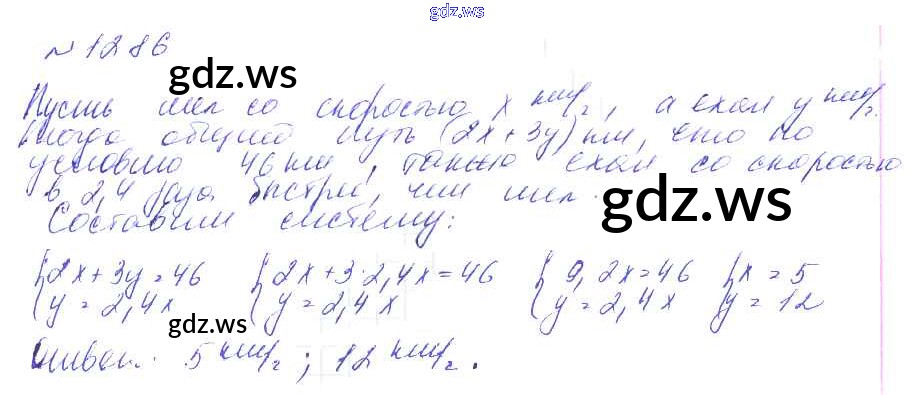 gdz.ws
№ 1286
gdz.ws
Пусть шел со скоростью x км/г, а ехал y км/г.
тогда общий путь (2x+3y) км, что по
условию 46 км, также ехал со скоростью
в 2,4 раза быстрей, чем шел.
gdz.ws
Составим систему:
{2x+3y=46 {2x+3·2,4x=46 {9,2x=46 {x=5
{y=2,4x {y=2,4x {y=2,4x {y=12
gdz.ws
Ответ: 5 км/г; 12 км/г.